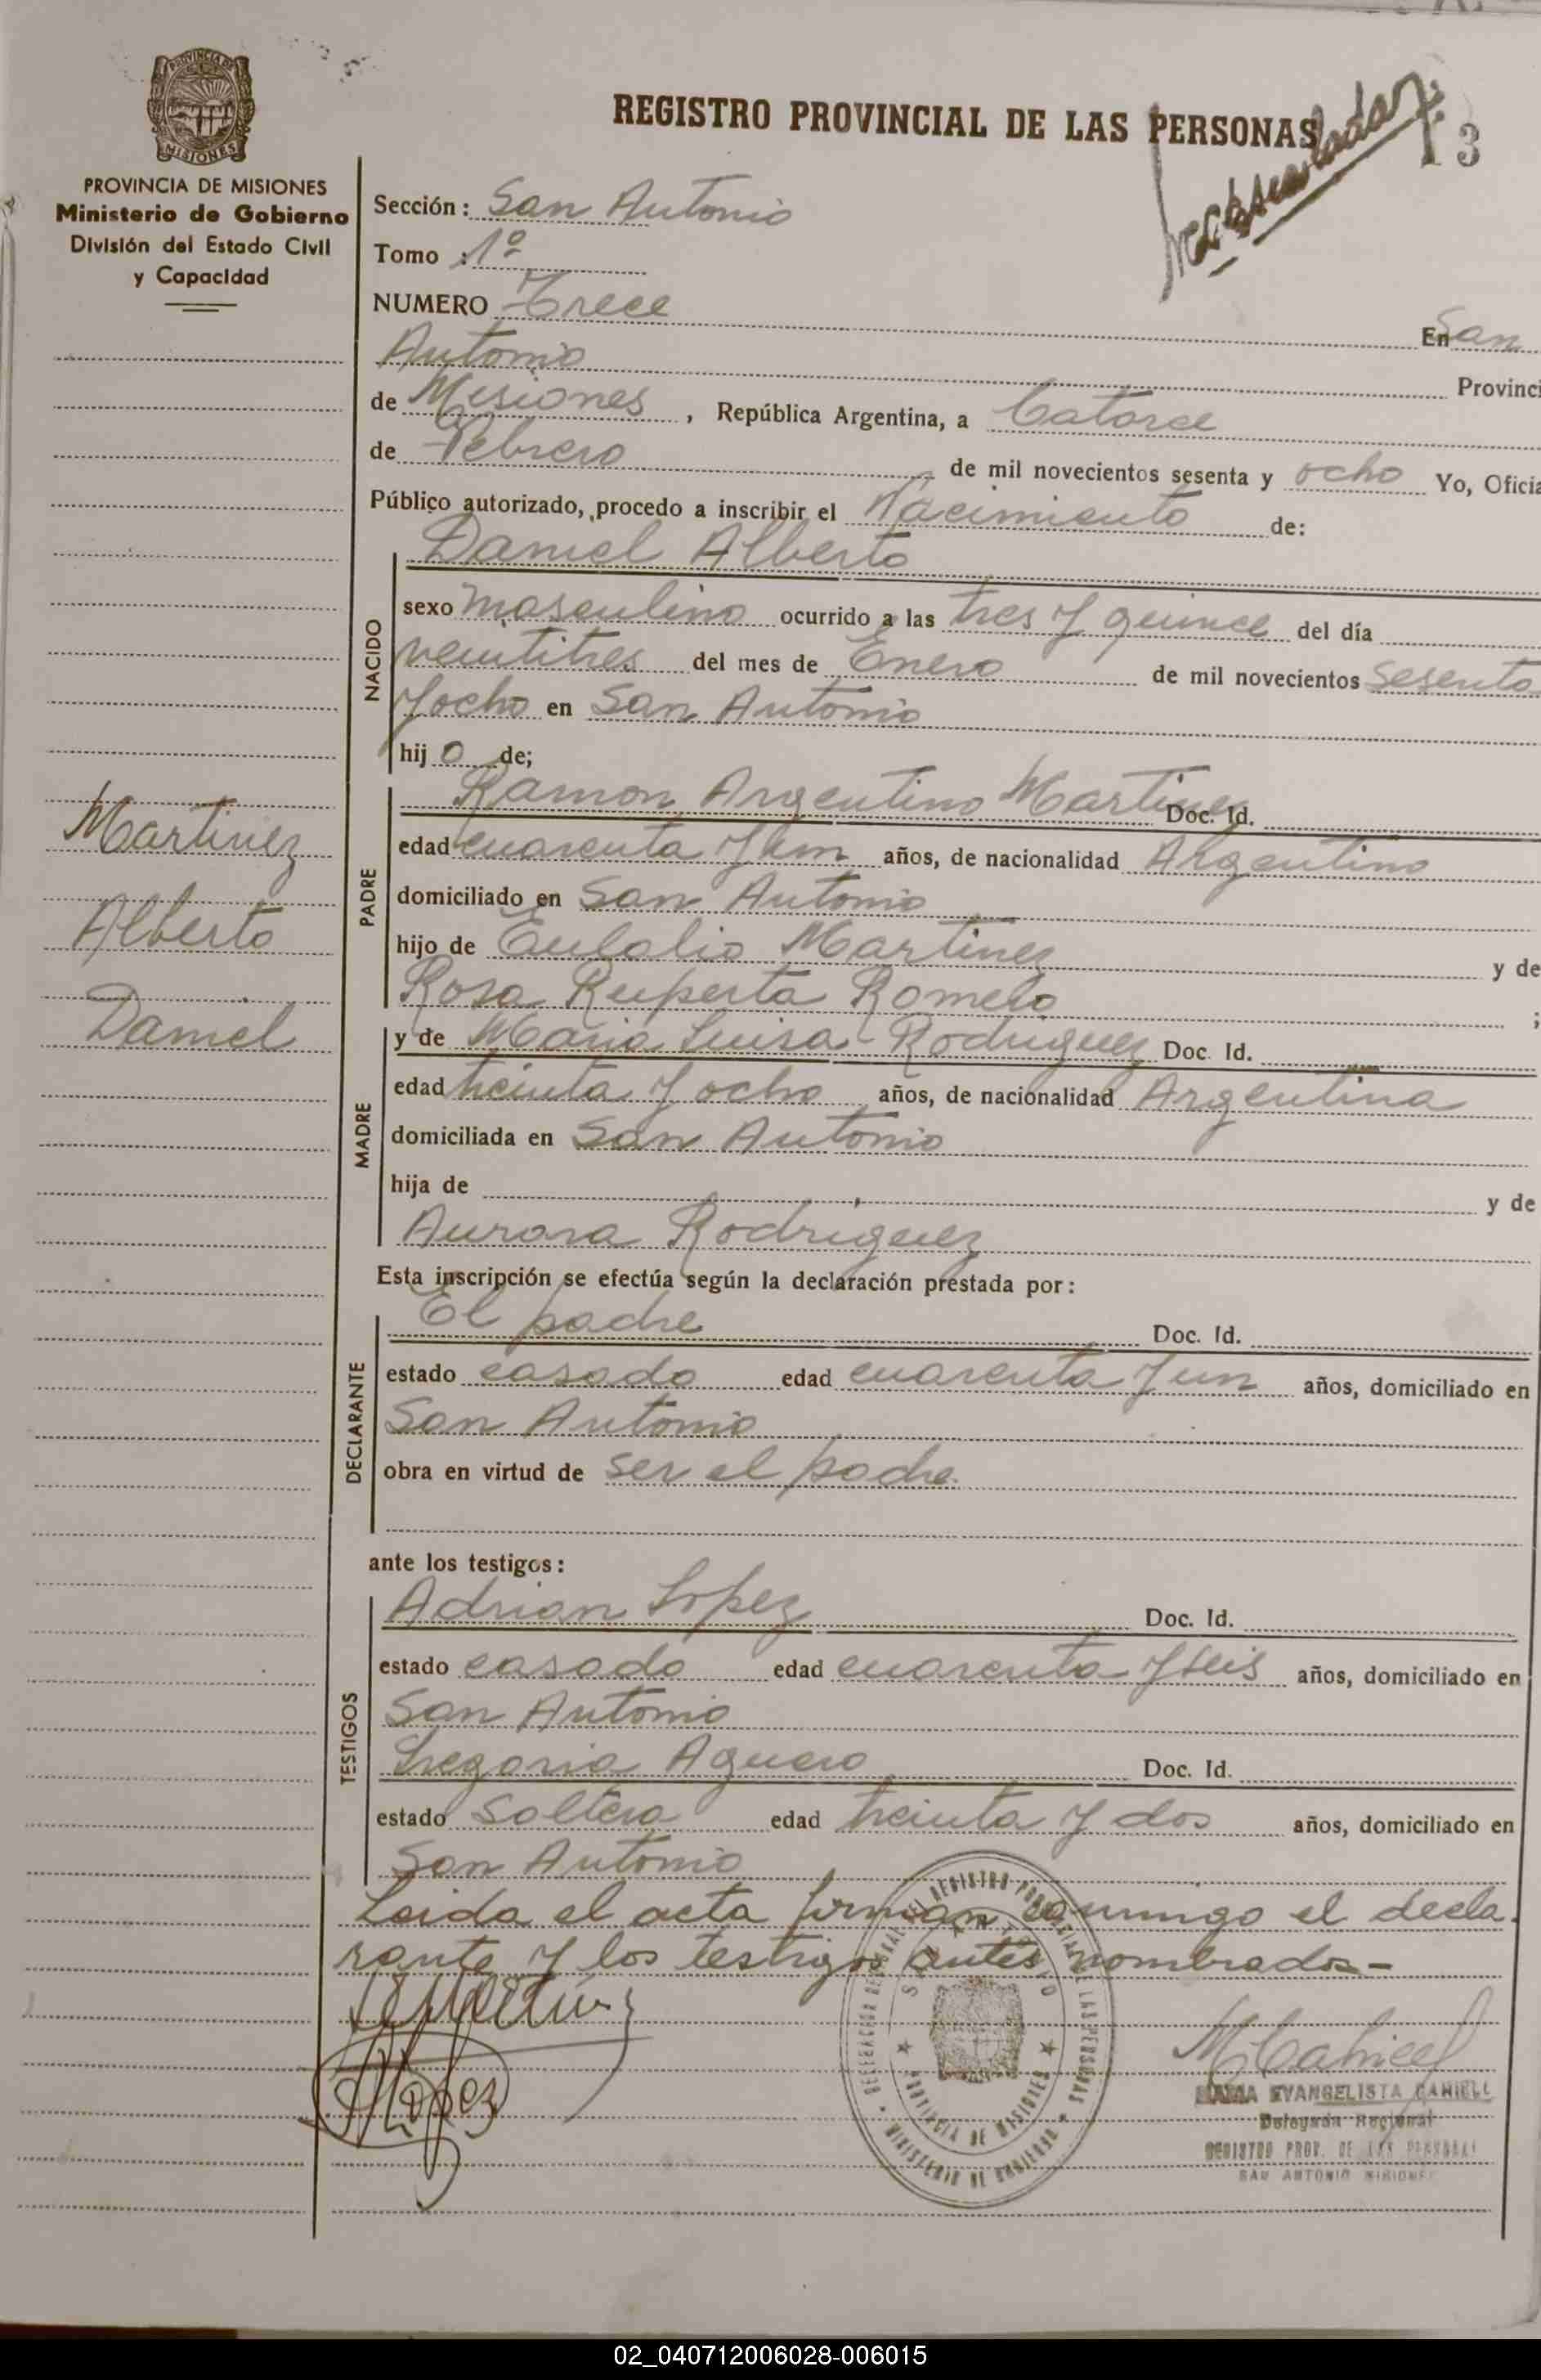 REGISTRO PROVINCIAL DE LAS PERSONAS
13
PROVINCIA DE MISIONES
Ministerio de Gobierno
División del Estado Civil
y Capacidad
Sección: San Antonio
Tomo : 1º
NUMERO Trece En San
Antonio Provinci
de Misiones , República Argentina, a Catorce
de Febrero de mil novecientos sesenta y ocho Yo, Oficia
Público autorizado, procedo a inscribir el Nacimiento de:
NACIDO
Daniel Alberto
sexo masculino ocurrido a las tres y quince del día
veintitres del mes de Enero de mil novecientos sesenta
y ocho en San Antonio
hij o de;
PADRE
Ramon Argentino Martinez Doc. Id.
edad cuarenta y un años, de nacionalidad Argentino
domiciliado en San Antonio
hijo de Eulalio Martinez y de
Rosa Ruperta Romero ;
Martinez
Alberto
Daniel
MADRE
y de Maria Luisa Rodriguez Doc. Id.
edad treinta y ocho años, de nacionalidad Argentina
domiciliada en San Antonio
hija de y de
Aurora Rodriguez
Esta inscripción se efectúa según la declaración prestada por:
DECLARANTE
El padre Doc. Id.
estado casado edad cuarenta y un años, domiciliado en
San Antonio
obra en virtud de ser el padre.
ante los testigos:
TESTIGOS
Adrian Lopez Doc. Id.
estado casado edad cuarenta y seis años, domiciliado en
San Antonio
Gregoria Aguero Doc. Id.
estado soltera edad treinta y dos años, domiciliado en
San Antonio
Leida el acta firman conmigo el decla
rante y los testigos antes nombrados-
ALopez
MCahiell
MARIA EVANGELISTA CAHIELL
Delegada Regional
REGISTRO PROV. DE LAS PERSONAS
SAN ANTONIO MISIONES
PROVINCIA DE MISIONES
MINISTERIO DE GOBIERNO
02_040712006028-006015